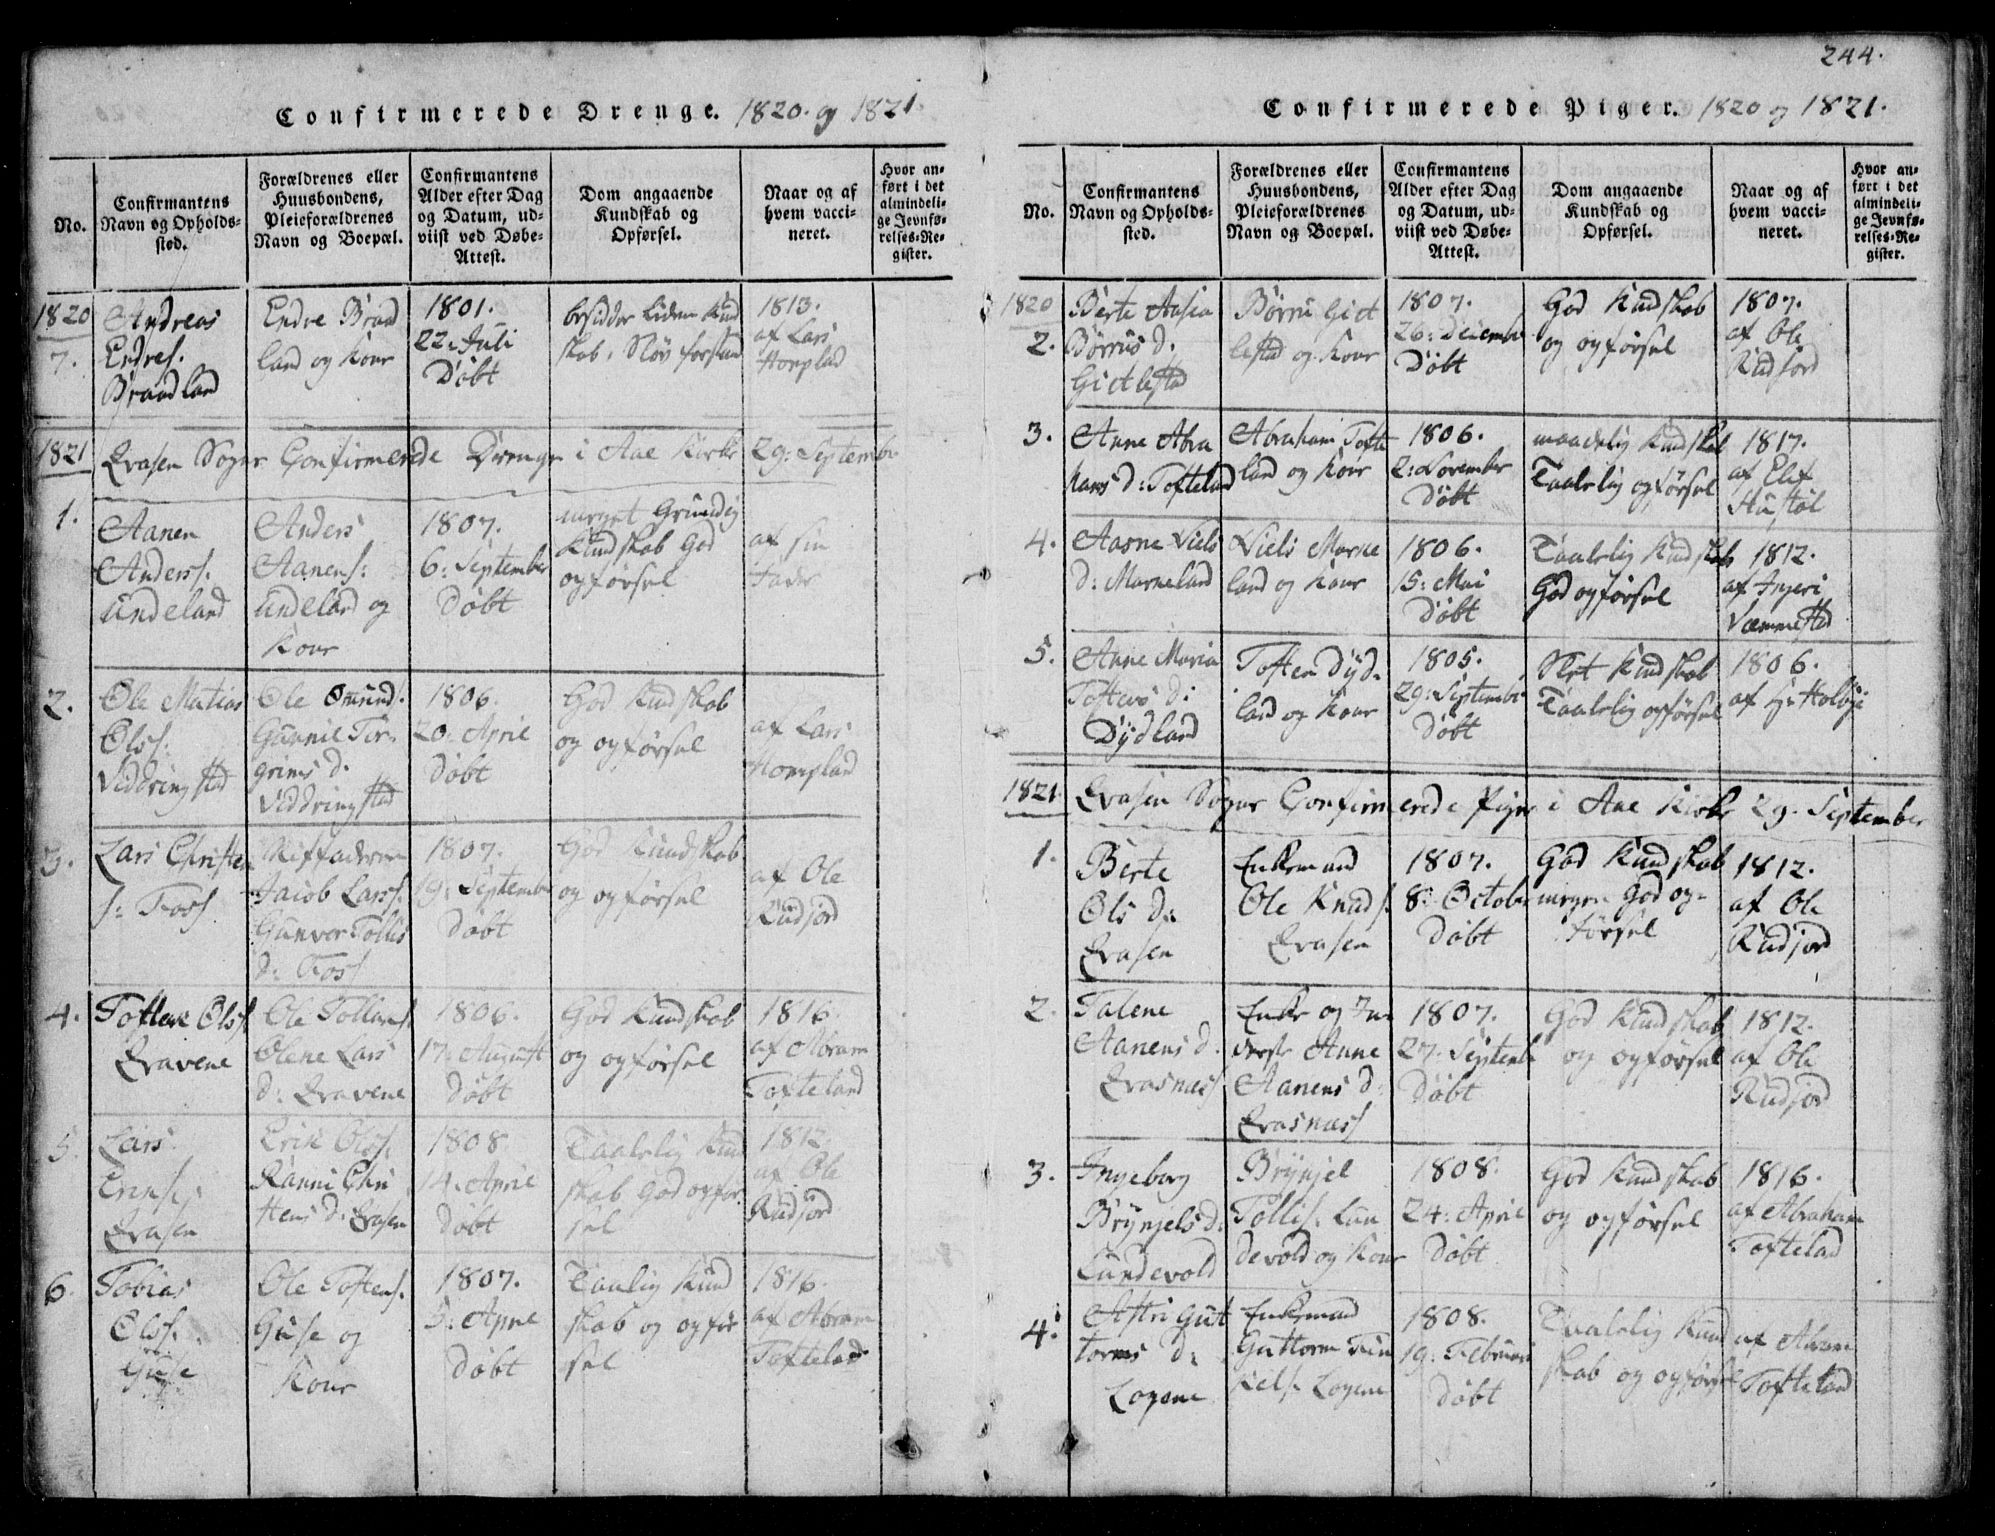 244.
Confirmerede Drenge. 1820. og 1821.
No.
Confirmantens
Navn og Opholds-
sted.
Forældrenes eller
Huusbondens,
Pleieforældrenes
Navn og Boepæl.
Confirmantens
Alder efter Dag
og Datum, ud-
viist ved Døbe-
Attest.
Dom angaaende
Kundskab og
Opførsel.
Naar og af
hvem vacci-
neret.
Hvor an-
ført i det
almindeli-
ge Jevnfø-
relses-Re-
gister.
1820
7.
Andreas
Endres.
Braadland
Endre Braad
land og Kone
1801.
22: Juli
Døbt
besidder liden Kund
skab, Sløv forstand
1813.
af Lars
Homplad
1821
Qvasen Sogns Confirmerede Drenge i Aae Kirke 29: Septembr
1.
Aanen
Anders.
Undeland
Anders
Aanens:
Undeland og
Kone
1807.
6: September
Døbt
meget Grundig
Kundskab God
opførsel
af sin
Fader
2.
Ole Matias
Ols.
Viddringstad
Ole Omund.
Gunnil Tor-
grims d.
Viddringstad
1806.
20: April
døbt
God Kundskab
og opførsel
af Lars
Homplad
3.
Lars Christen
s: Foss
Stiffaderen
Jacob Larss.
Gunvor Tollis
d: Foss
1807.
19: Septembr
Døbt
God Kundskab
og opførsel
af Ole
Rudjord
4.
Tosten Ols.
Qvavene
Ole Tollevs.
Olene Lars
d: Qvavene
1806.
17: August
Døbt
God Kundskab
og opførsel
1816.
af Abram
Tofteland
5.
Lars
Eriks.
Qvasen
Erik Ols:
Ranni Chri
stens d: Qvasen
1808.
14: April
Døbt
Taalelig Kund
skab God opfør
sel
1812.
af Ole
Rudjord
6.
Tobias
Ols.
Guse
Ole Tostens.
Guse og
Kone
1807.
5: April
Døbt
Taalig Kund
skab og opfør
sel
1816.
af Abram
Tofteland
Confirmerede Piger. 1820 og 1821.
No.
Confirmantens
Navn og Opholds-
sted.
Forældrenes eller
Huusbondens,
Pleieforældrenes
Navn og Boepæl.
Confirmantens
Alder efter Dag
og Datum, ud-
viist ved Døbe-
Attest.
Dom angaaende
Kundskab og
Opførsel.
Naar og af
hvem vacci-
neret.
Hvor an-
ført i det
almindeli-
ge Jevnfø-
relses-Re-
gister.
1820
2.
Berte Aasea
Børrus d.
Gietlestad
Børru Giet
lestad og Kone
1807.
26: Decembr
Døbt
God Kundskab
og opførsel
1807.
af Ole
Rudjord
3.
Anne Abra
hams d: Tofteland
Abraham Tofte
land og Kone
1806.
2: November
Døbt
maadelig Kundskab
Taalelig opførsel
1817.
af Elef
Hustøl
4.
Aasne Niels
d: Marneland
Niels Marne
land og Kone
1806.
15: Mai
Døbt
Taalelig Kundskab
God opførsel
1812.
af Injeri
Væmmestad
5.
Anne Maria
Tostens d:
Dydland
Tosten Dyd-
land og Kone
1805.
29: Septembr
Døbt
Slet Kundskab
Taalelig opførsel
1806.
af Hr Holbye
1821.
Qvasen Sogns Confirmerede Piger i Aae Kirke 29. September
1.
Berte
Ols d:
Qvasen
Enkemand
Ole Knuds.
Qvasen
1807.
8: October
Døbt
God Kundskab
megen God op-
førsel
1812.
af Ole
Rudjord
2.
Talene
Aanens d.
Qvasnæss
Enke og In-
derste Anne
Aanens d:
Qvasnæss
1807.
27: Septembr
Døbt
God Kundskab
og opførsel
1812.
af Ole
Rudjord
3.
Ingeborg
Brynjels d:
Lundevold
Brynjel
Tollis: Lun
devold og Kone
1808.
24: April
Døbt
God Kundskab
og opførsel
1816.
af Abraham
Toftelad
4.
Astri Gut
torms d:
Logene
Enkemand
Guttorm Tin
kels. Logene
1808.
19: Februar
Døbt
Taalelig Kund
skab og opførsel
af Abram
Tofteland